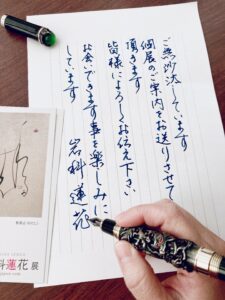 ご無沙汰しています
個展のご案内をお送りさせて
頂きます
皆様によろしくお伝え下さい
お会いできます事を楽しみに
しています
岩科蓮花
科蓮花展